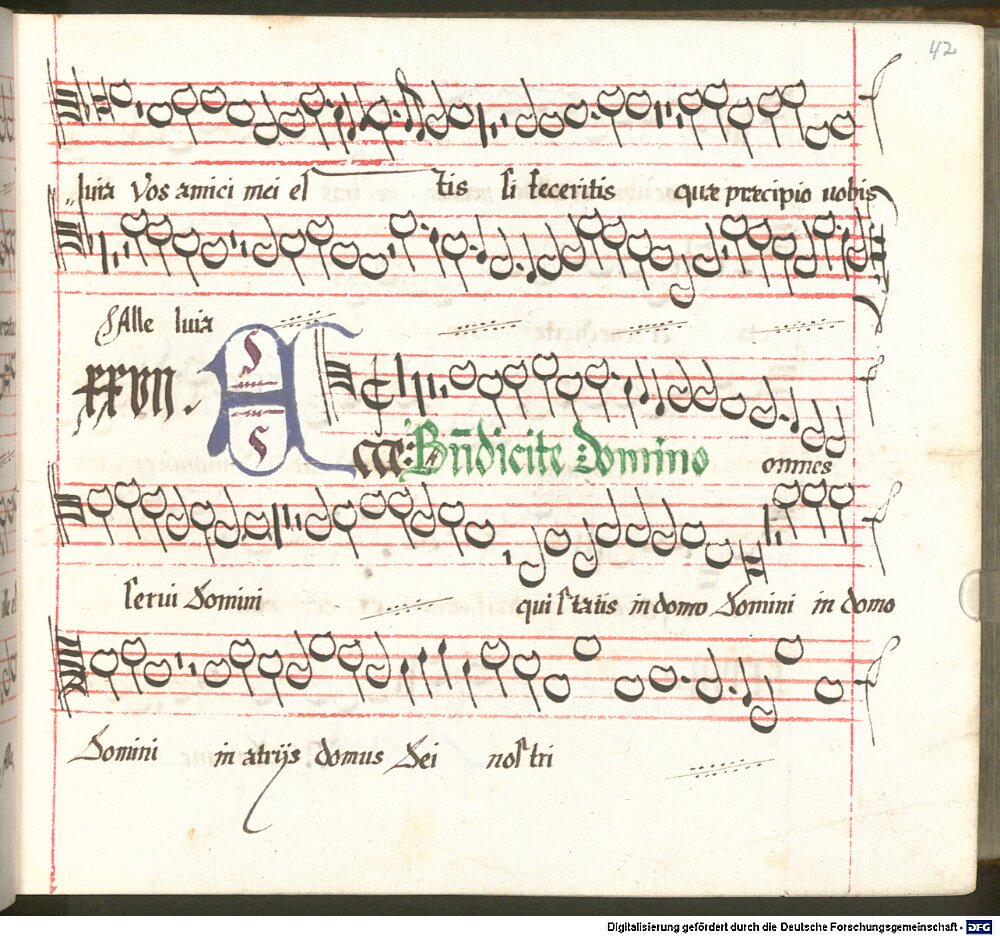 42
luia Vos amici mei estis si feceritis quæ præcipio uobis
Alle luia
XXVII. Ecce Bñdicite Domino omnes
serui Domini qui statis in domo Domini in domo
Domini in atrijs domus Dei nostri
Digitalisierung gefördert durch die Deutsche Forschungsgemeinschaft - DFG